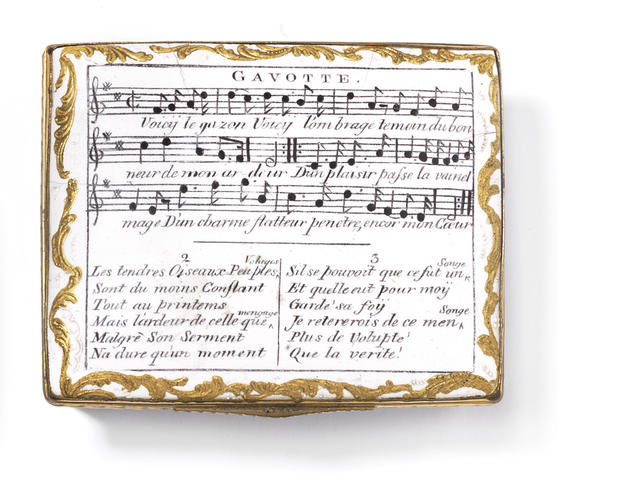 GAVOTTE.
Voicy le gazon Voicy l'ombrage temoin du bon
neur de mon ardeur D'un plaisir passe la vaine I
mage D'un charme flatteur penetre, encor mon Cœur
2
Les tendres Oiseaux Peuples, Volages
Sont du moins Constant
Tout au printems
Mais l'ardeur de celle que mengage
Malgré Son Serment
Na dure qu'un moment
3
S'il se pouvoit que ce fut un Songe
Et quelle eut pour moÿ
Gardé sa foÿ
Je retererois de ce men Songe
Plus de Volupté
Que la verité!